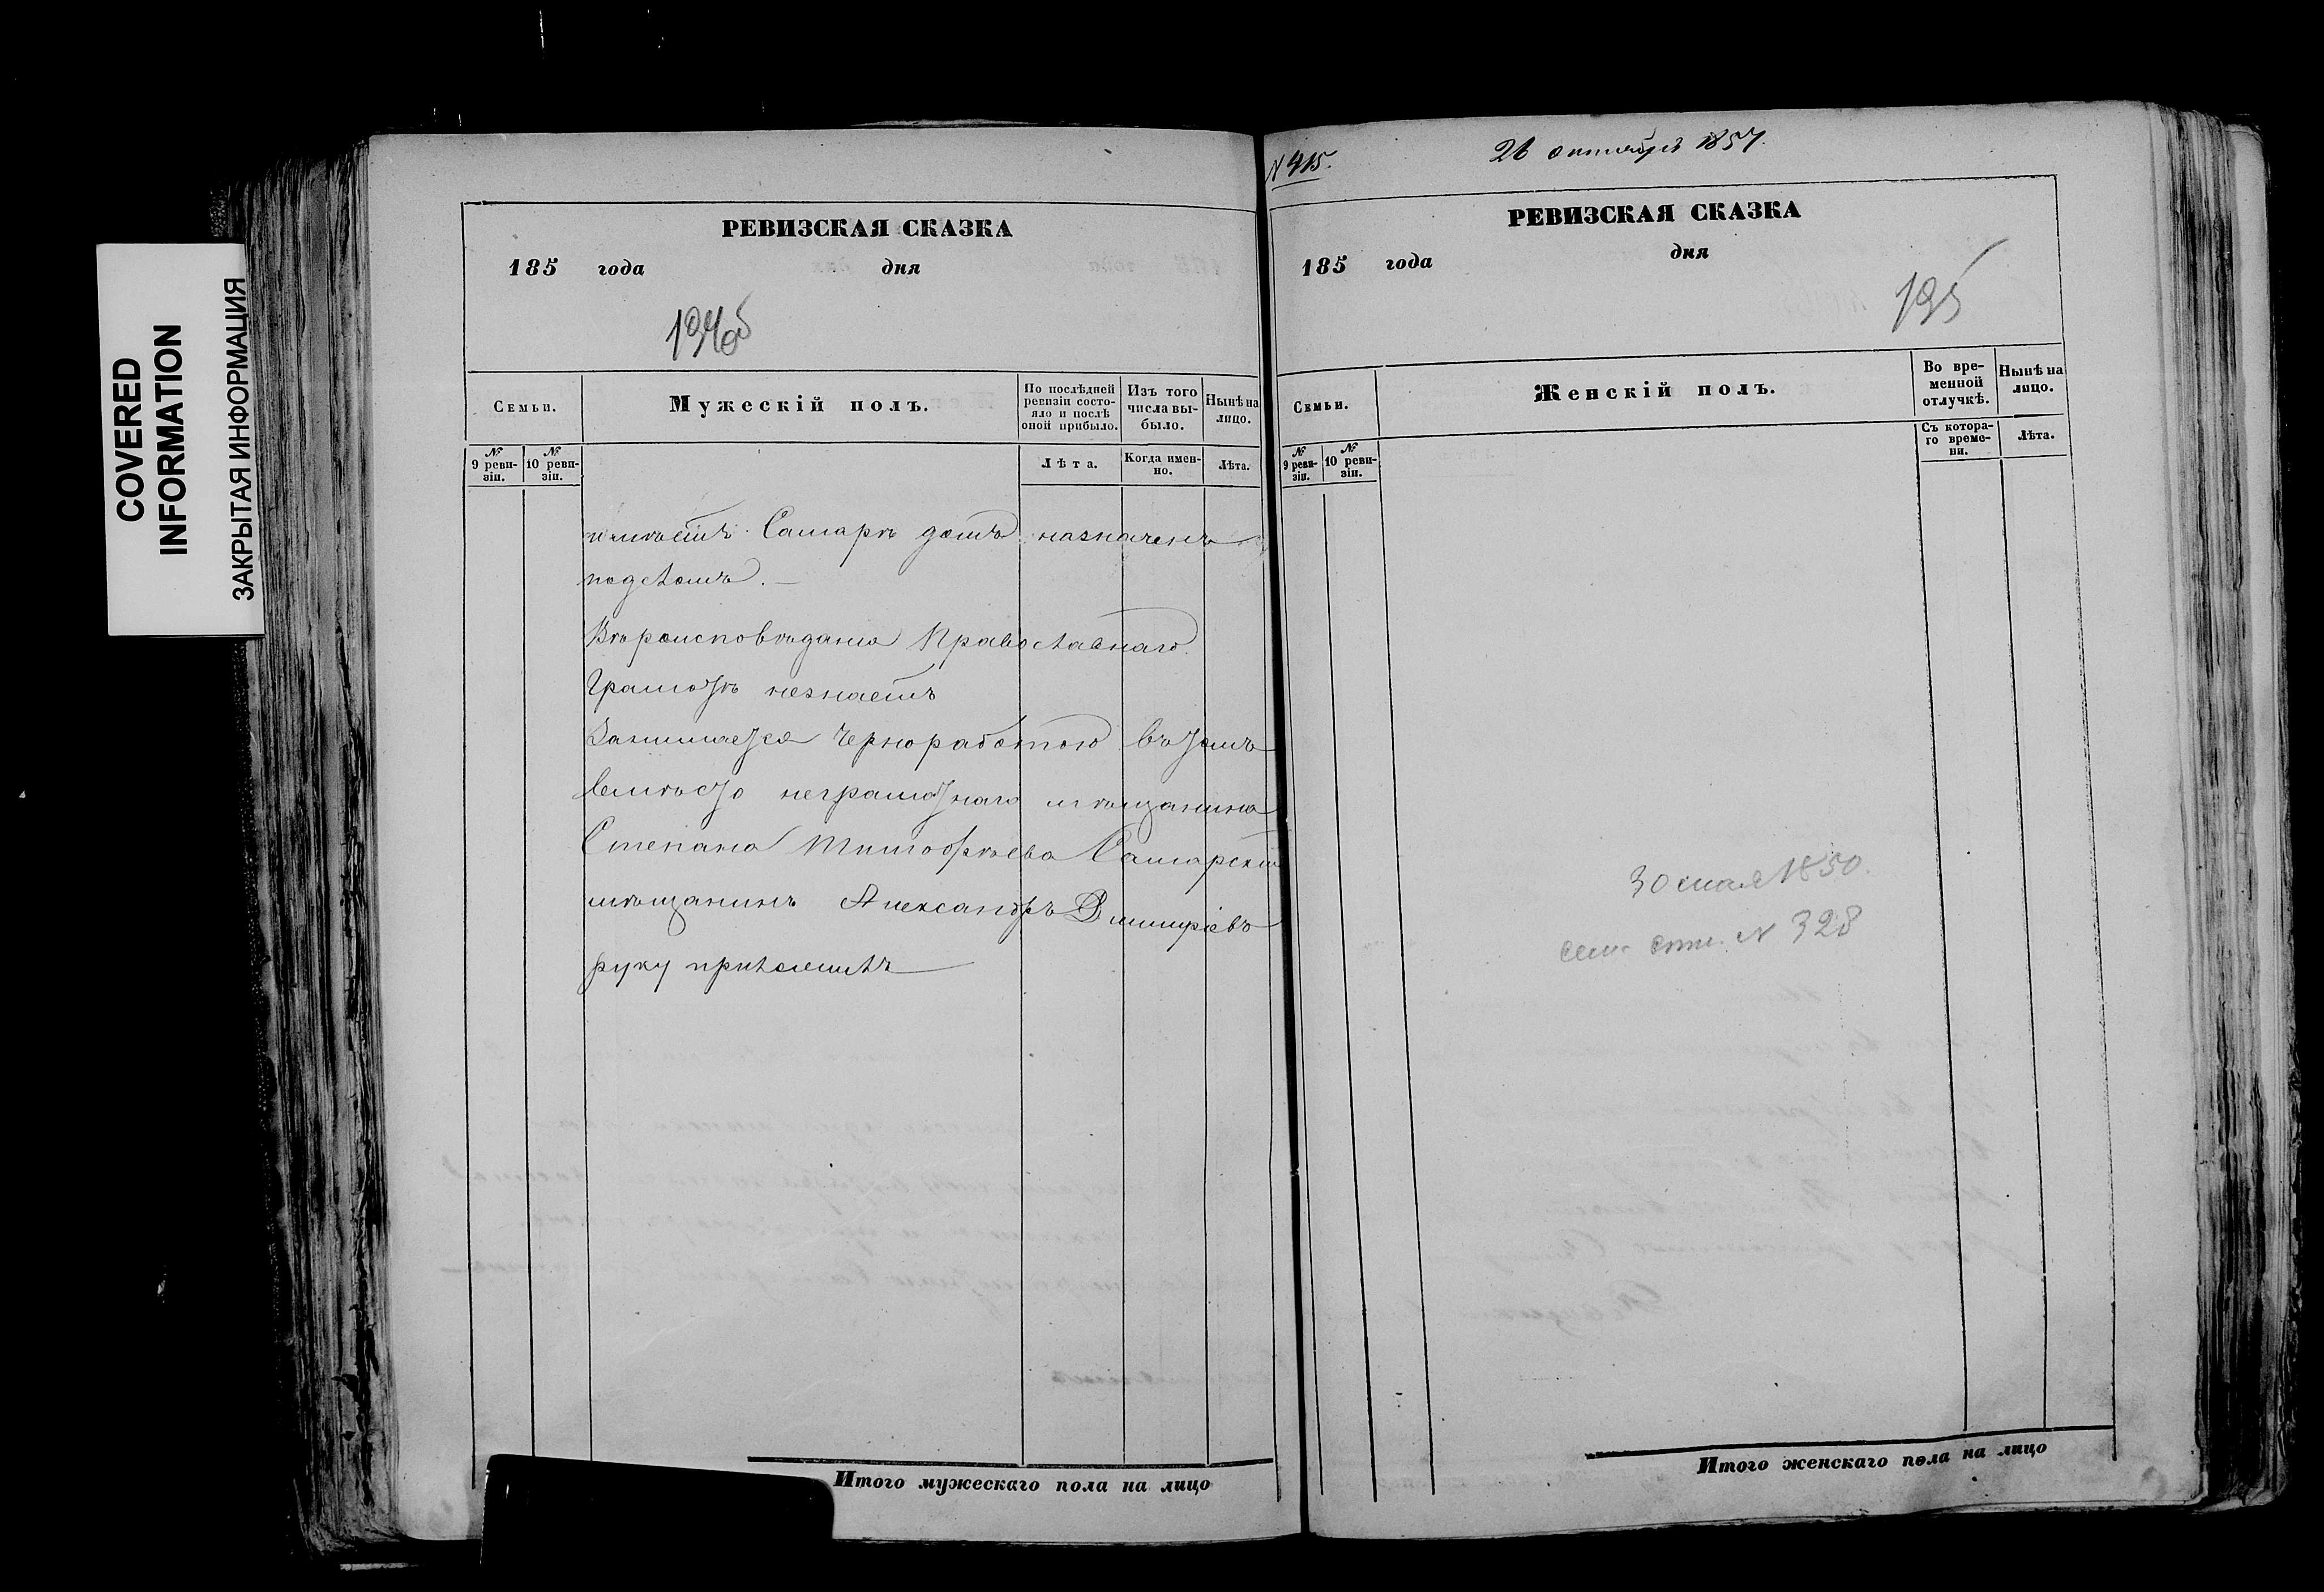 COVERED
INFORMATION
ЗАКРЫТАЯ ИНФОРМАЦИЯ
РЕВИЗСКАЯ СКАЗКА
185 года дня
Семьи.
Мужескій полъ.
По послѣдней ревизіи состояло и послѣ оной прибыло.
Изъ того числа выбыло.
Нынѣ на лицо.
№ 9 ревизіи.
№ 10 ревизіи.
Лѣта.
Когда именно.
Лѣта.
имѣетъ Самарѣ домъ назначенъ
подсломъ.
Вѣроисповѣдания Православнаго.
Грамотѣ незнаетъ
Занимается Чернорабоmою въ томъ
вмѣсто неграмотнаго мѣщанина
Степана Тимофѣева Самарскій
мѣщанинъ Александръ Димитріевъ
руку приложилъ
Итого мужескаго пола на лицо
№ 415.
26 октября 1857.
РЕВИЗСКАЯ СКАЗКА
185 года дня
195
Семьи.
Женскій полъ.
Во временной отлучкѣ.
Нынѣ на лицо.
№ 9 ревизіи.
№ 10 ревизіи.
Съ котораго времени.
Лѣта.
30 мая 1850.
№ 328
Итого женскаго пола на лицо